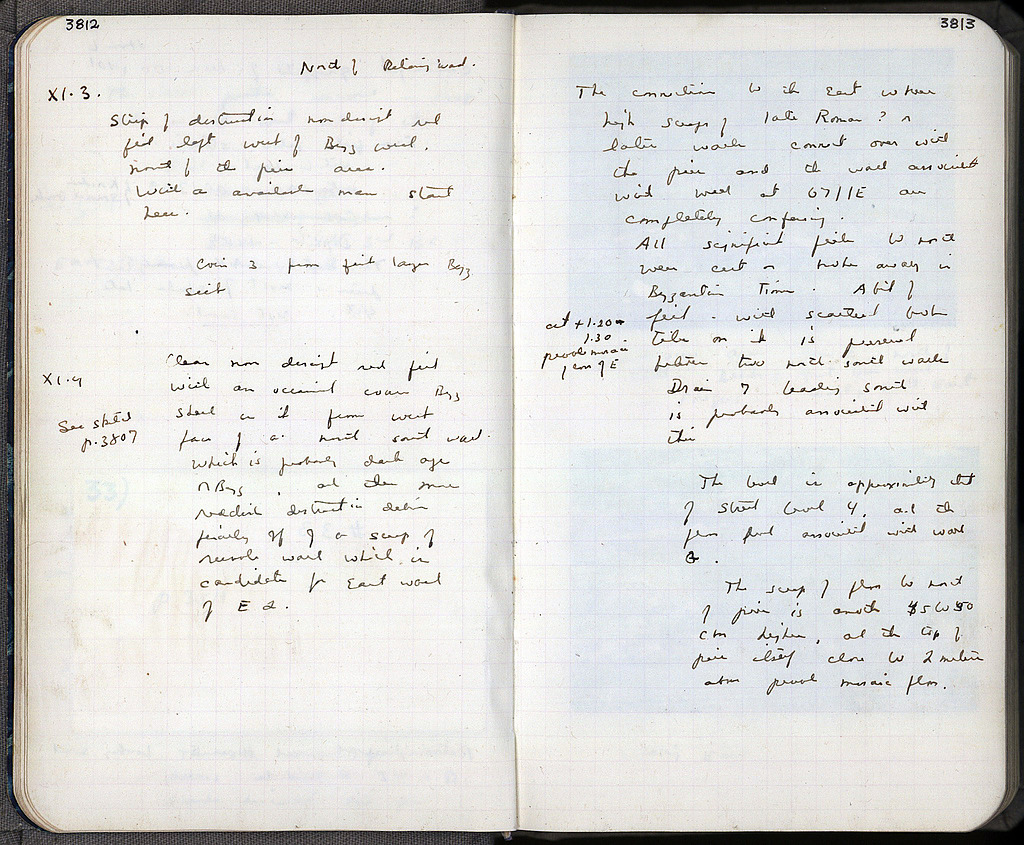 3812
North of Retaining wall.
X1.3.
Strip of destruction non descript red
fill left west of Byz wall.
north of the pier area.
With a available man start
here.
Coin 3 from first layer Byz
X1.4
Clear non descript red fill
with an occasional coarse Byz
sherd in it from west
See sketch
p.3807
face of a north south wall.
which is probably dark age
Byz, at the same
destruction debris
of a scrap of
wall which is
candidate for East wall
of E 2.
3813
The connection to the East where
high scraps of late Roman? or
later walls connect over with
the pier and the wall associated
with wall at 67/1E are
completely confusing.
All significant fills to north
were cut or broken away in
Byzantine Times. A bit of
at +1.20
1.30
mosaic
floor of E
fill with scattered broken
tile on it is preserved
between two north south walls
Drain 7 leading south
is probably associated with
this
The level is approximately that
of street level 4, and the
floor level associated with wall
G.
The scrap of floor to north
of pier is another 50
cm higher, and the top of
pier itself close to 2 meters
above mosaic floor.